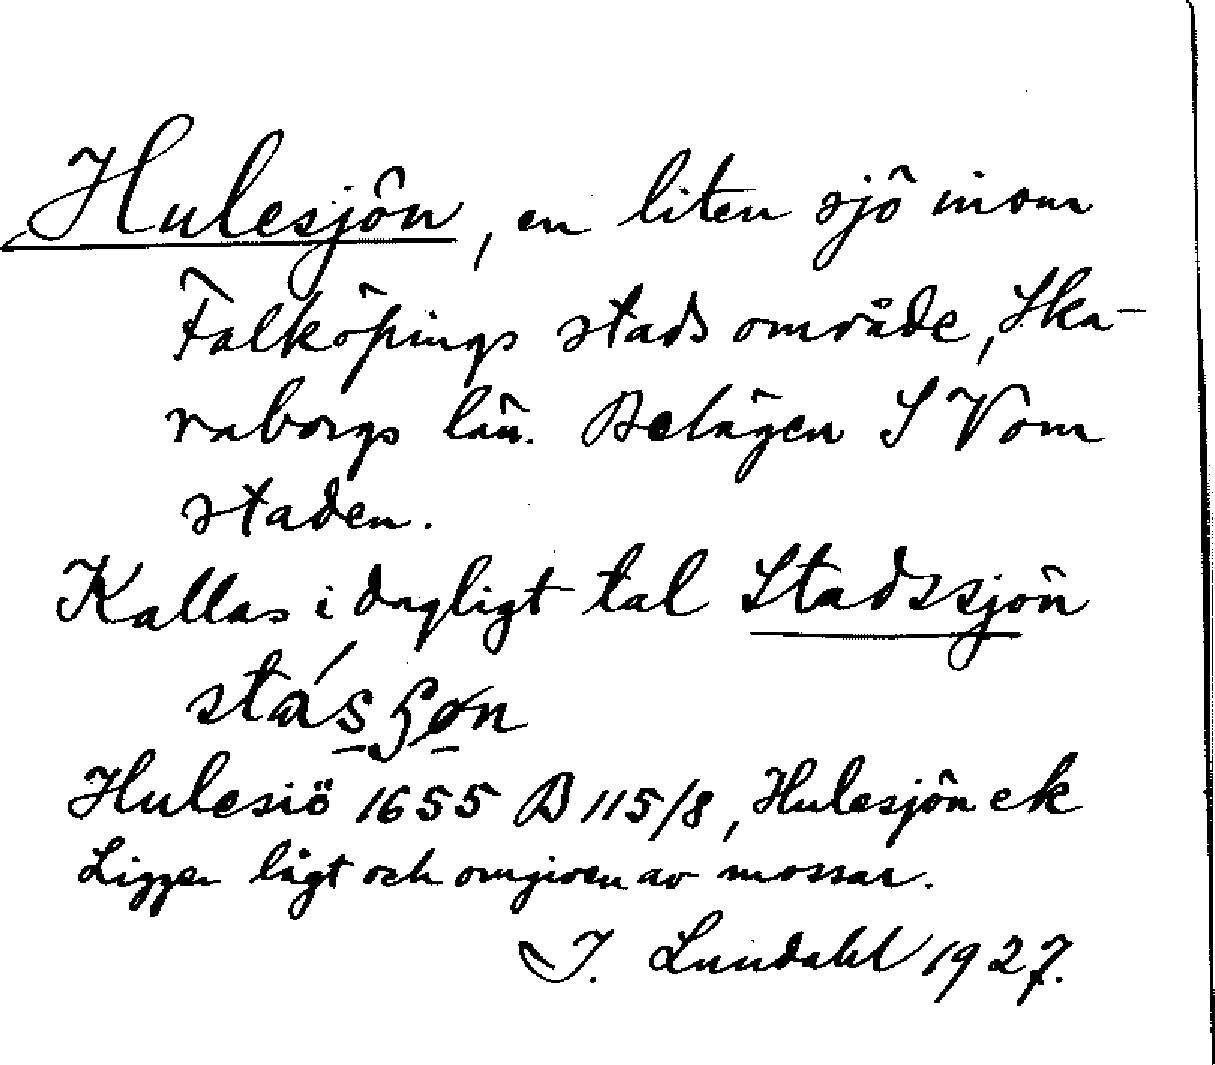 Hulesjön, en liten sjö inom
Falköpings stads område, Ska-
raborgs län. Belägen S V om
staden.
Kallas i dagligt tal Stadssjön
Hulesiö 1655 B 115/8, Hulesjön ek
Ligger lågt och omgiven av mossar.
I. Lundahl 1927.